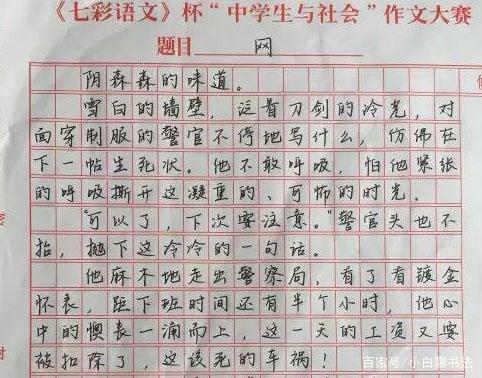 《七彩语文》杯“中学生与社会”作文大赛
题目 网
阴森森的味道。
雪白的墙壁，泛着刀剑的冷光，对
面穿制服的警官不停地写什么，仿佛在
下一帖生死状。他不敢呼吸，怕他紧张
的呼吸撕开这凝重的、可怖的时光。
“可以了，下次要注意。”警官头也不
抬，抛下这冷冷的一句话。
他麻木地走出警察局，看了看镀金
怀表，距下班时间还有半个小时，他心
中的懊丧一涌而上，这一天的工资又要
被扣除了，这该死的车祸！
百家号/小白聊书法